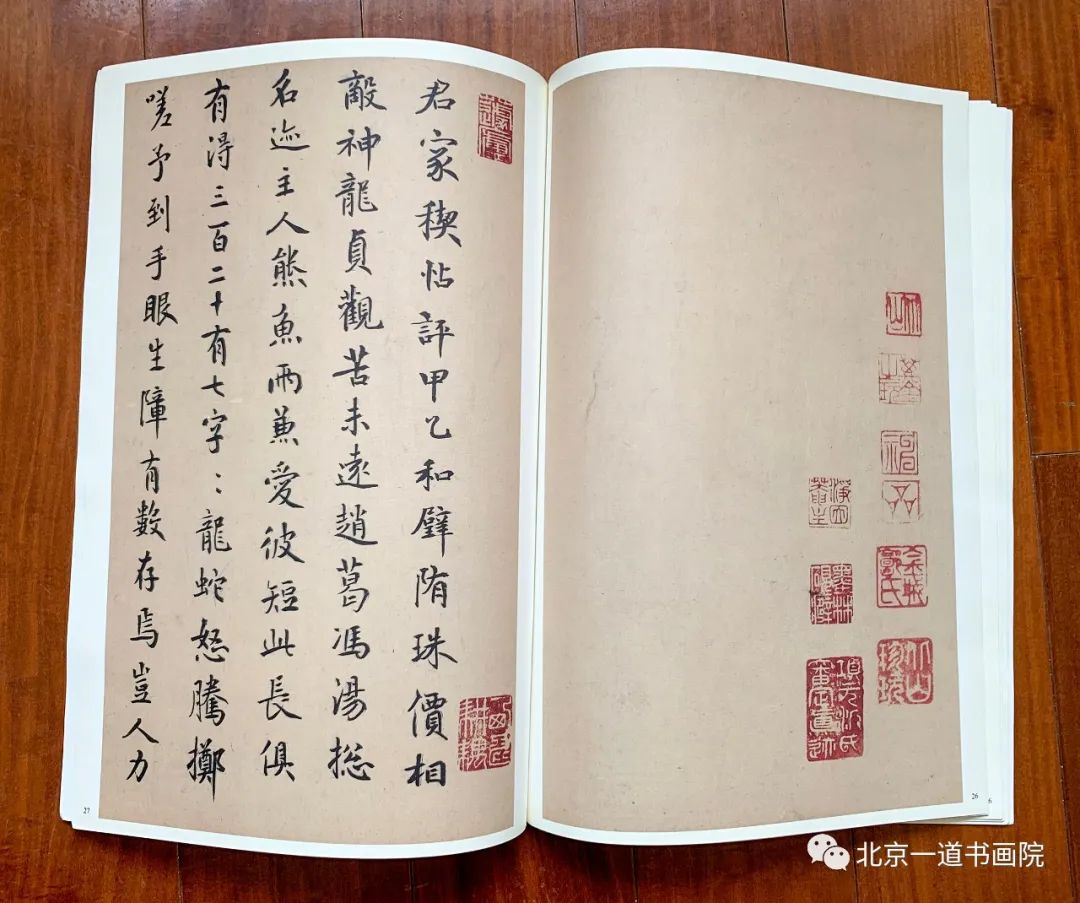 君家稧帖評甲乙和璧隋珠價相
敵神龍貞觀苦未遠趙葛馮湯揔
名迹主人熊魚兩兼愛彼短此長俱
有得三百二十有七字：龍蛇怒騰擲
嗟予到手眼生障有數存焉豈人力
27
26
6
北京一道书画院